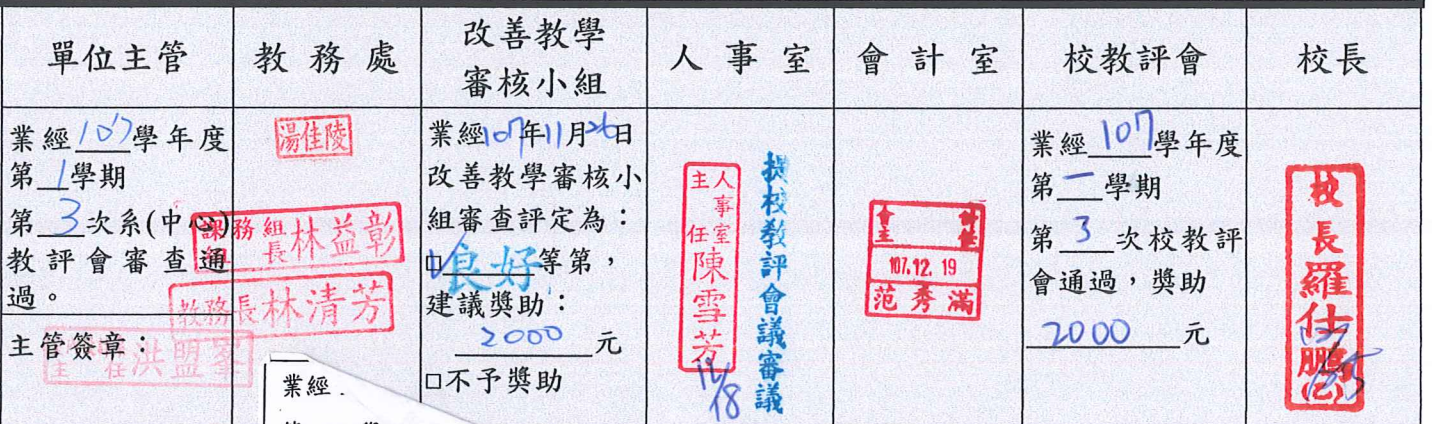 單位主管
教務處
改善教學
審核小組
人事室
會計室
校教評會
校長
業經107學年度
第1學期
第3次系(中心)
教評會審查通
過。
主管簽章：
主任洪盟峯
湯佳陵
課務組長林益彰
教務長林清芳
業經
業經107年11月26日
改善教學審核小
組審查評定為：
良好等第，
建議獎助：
2000元
□不予獎助
人事室主任陳雪芳
12/18
提校教評會議審議
會計主任
107.12.19
范秀滿
業經107學年度
第一學期
第3次校教評
會通過，獎助
2000元
校長羅仕鵬(乙)